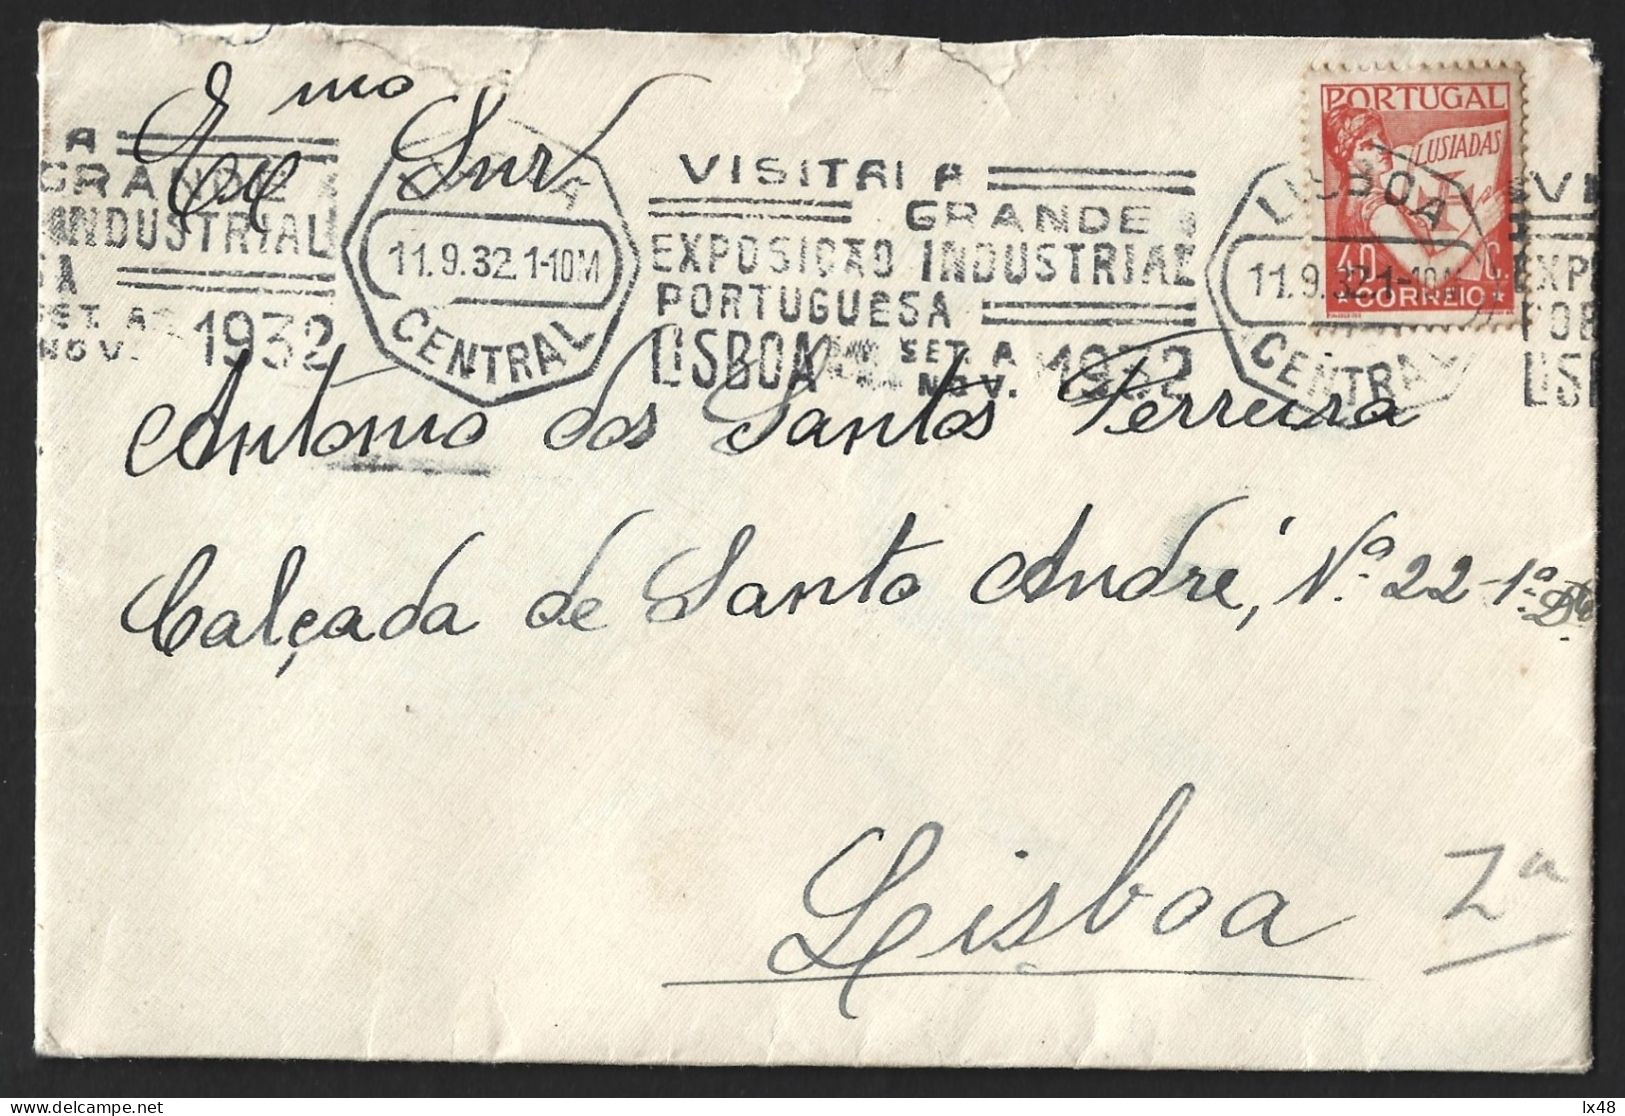 Exmo Snr
António dos Santos Ferreira
Calçada de Santo André, Nº 22-1º Dto
Lisboa
2ª
PORTUGAL
LUSIADAS
40 C.
CORREIO
LISBOA
11.9.32.1-10M
CENTRAL
VISITAI A
GRANDE
EXPOSIÇÃO INDUSTRIAL
PORTUGUESA
LISBOA SET. A NOV. 1932
LISBOA
11.9.32.1-10M
CENTRAL
A
GRANDE
INDUSTRIAL
SA
SET. A
NOV. 1932
VI
EXP
POR
LIS
lx48